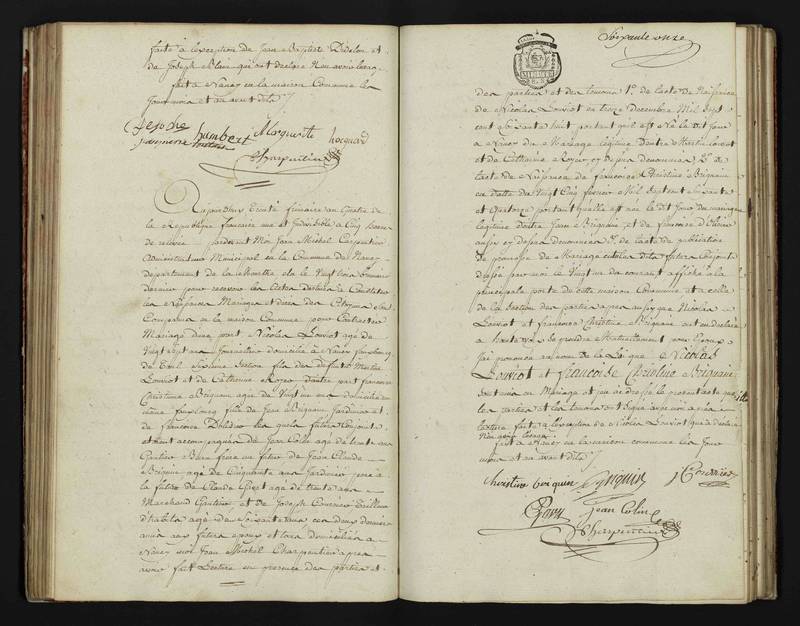 faite à lexception de Jean Baptiste Didelon et
de Joseph Blaise qui ont declaré
fait à Nancy en la maison Commune les
Jour mois et an avant dits
Humbert Marguerite Hocquard
Charpentier
Aujourdhuy trente frimaire an quatre de
la Republique francaise une et Indivisible à Cinq heures
de relevée pardevant Moi Jean Michel Carpentier
Administrateur Municipal en la Commune de Nancy
departement de la Meurthe elu le Vingt trois brumaire
dernier pour recevoir les Actes destinés à Constater
les Naissances Mariages et décès des Citoyens sont
Comparus en la maison Commune pour Contracter
Mariage dune part Nicolas Louviot agé de
Vingt sept ans Journalier domicilié à Nancy faubourg
de Toul Sixieme Section fils des defunts Martin
Louviot et de Catherine Royer dautre part francoise
Christine Briguin agée de Vingt un ans domiciliée au
même faubourg fille de Jean Briguin Jardinier et
de francoise les quels futurs Conjoints
etoient accompagnés de Jean Colin agé de trente ans
frere au futur de Jean Claude
Briguin agé de Cinquante ans Jardinier pere à
la future de Claude agé de trente ans
Marchand et de Joseph Courrier Tailleur
dhabits agé de Soixante ans ces deux derniers
amis aux futurs epoux et tous domiciliés à
Nancy moi Jean Michel Charpentier apres
avoir fait Lecture en presence des parties et
Soixante onze
des parties et des temoins 1° de lacte de Naissance
de Nicolas Louviot en treize Decembre Mil Sept
cent Soixante huit portant quil est Né le dit Jour
à Nancy du Mariage légitime dentre Martin Louviot
et de Catherine Royer cy dessus denommés 2° de
lacte de Naissance de francoise Christine Briguin
en datte du Vingt Cinq fevrier Mil Sept cent Soixante
et Quatorze portant quelle est née le dit Jour du mariage
légitime dentre Jean Briguin et de francoise
aussy cy dessus denommés 3° de lacte de publication
de promesse de Mariage entre les dits futurs Conjoints
dressé par moi le Vingt un du courant affiché à la
principale porte de cette maison Commune et à celle
de la Section des parties apres aussy que Nicolas
Louviot et francoise Christine Briguin ont eu declaré
à haute voix se prendre Mutuellement pour Epoux
Jai prononcé au nom de la Loi que Nicolas
Louviot et francoise Christine Briguin
sont unis en Mariage et jai dressé le present acte que
les parties et les temoins ont signé avec moi apres
lecture faite à lexception de Nicolas Louviot qui a declaré
fait à Nancy en la maison commune les Jour
mois et an avant dits
Christine briguin Briguin J Courrier
Jean Colin
Charpentier